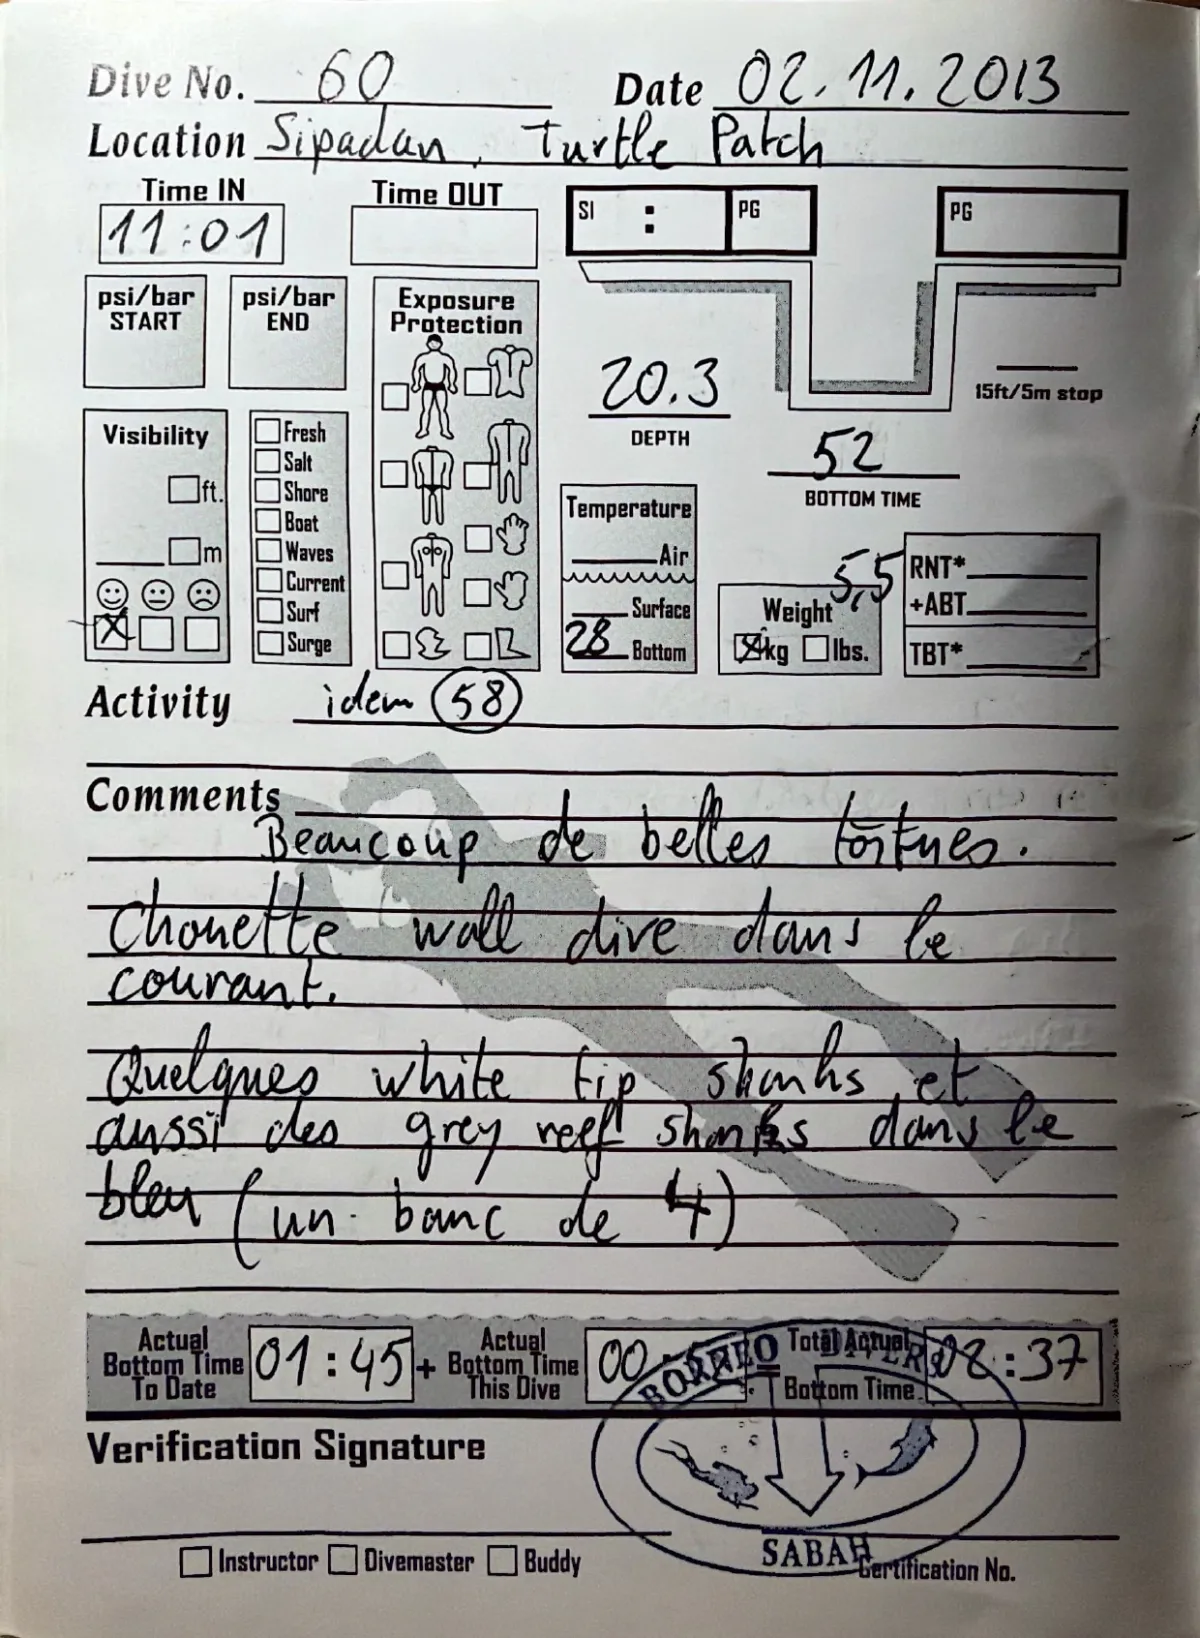 Dive No. 60 Date 02.11.2013
Location Sipadan, Turtle Patch
Time IN Time OUT
11:01
SI : PG PG
psi/bar START psi/bar END
Exposure Protection
20.3
DEPTH
15ft/5m stop
52
BOTTOM TIME
Visibility
ft.
m
Fresh
Salt
Shore
Boat
Waves
Current
Surf
Surge
Temperature
Air
Surface
28 Bottom
5,5
Weight
kg lbs.
RNT*
+ABT
TBT*
Activity idem 58
Comments
Beaucoup de belles tortues.
Chouette wall dive dans le
courant.
Quelques white tip sharks et
aussi des grey reef sharks dans le
bleu (un banc de 4)
Actual Bottom Time To Date 01:45 + Actual Bottom Time This Dive 00: Total Actual Bottom Time 02:37
BORNEO DIVERS
Verification Signature
SABAH
Instructor Divemaster Buddy Certification No.